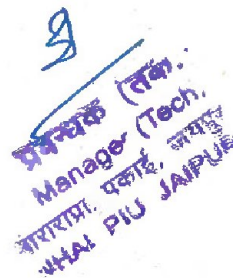 प्रबन्धक (तक.
Manager (Tech.
भाराराप्रा. एकाई, जयपुर
NHAI PIU JAIPUR